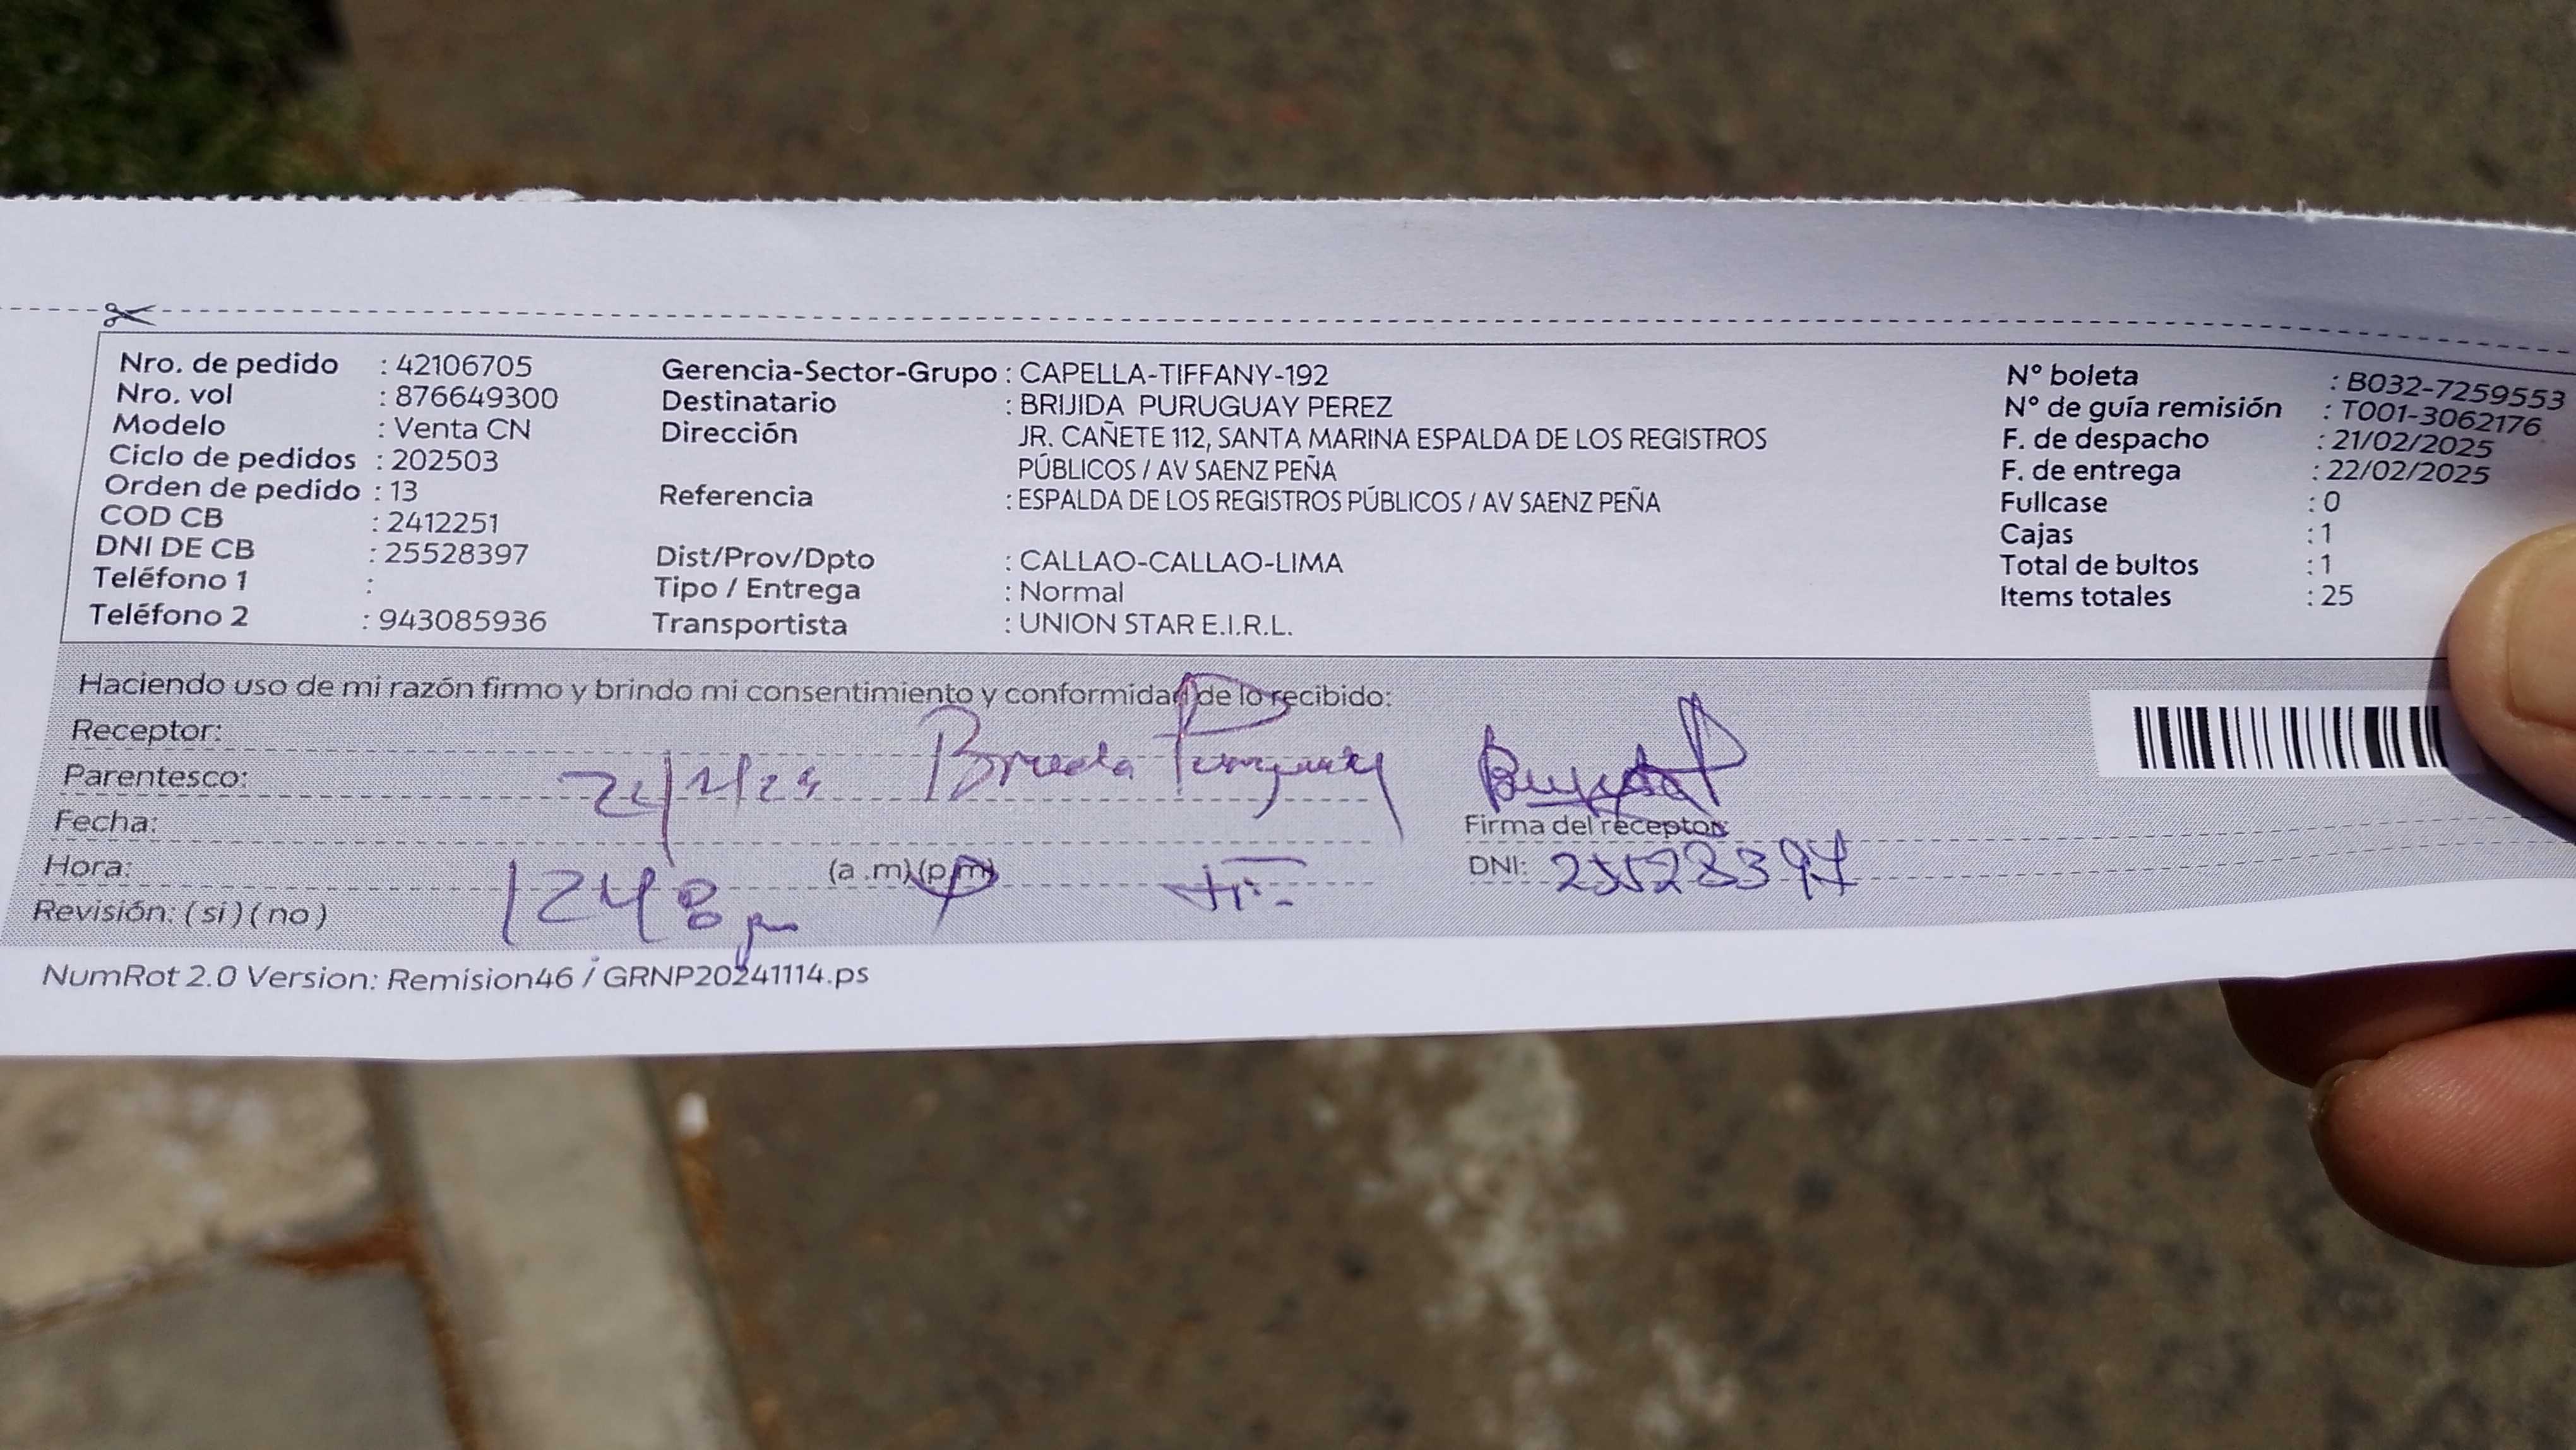 Nro. de pedido : 42106705
Nro. vol : 876649300
Modelo : Venta CN
Ciclo de pedidos : 202503
Orden de pedido : 13
COD CB : 2412251
DNI DE CB : 25528397
Teléfono 1 :
Teléfono 2 : 943085936
Gerencia-Sector-Grupo : CAPELLA-TIFFANY-192
Destinatario : BRIJIDA PURUGUAY PEREZ
Dirección JR. CAÑETE 112, SANTA MARINA ESPALDA DE LOS REGISTROS
PÚBLICOS / AV SAENZ PEÑA
Referencia : ESPALDA DE LOS REGISTROS PÚBLICOS / AV SAENZ PEÑA
Dist/Prov/Dpto : CALLAO-CALLAO-LIMA
Tipo / Entrega : Normal
Transportista : UNION STAR E.I.R.L.
N° boleta : B032-7259553
N° de guía remisión : T001-3062176
F. de despacho : 21/02/2025
F. de entrega : 22/02/2025
Fullcase : 0
Cajas : 1
Total de bultos : 1
Items totales : 25
Haciendo uso de mi razón firmo y brindo mi consentimiento y conformidad de lo recibido:
Receptor:
Parentesco: Puruguay
Fecha:
Firma del receptor:
Hora: 1248 pm (a .m)(p.m)
DNI: 25528397
Revisión: ( si ) ( no )
NumRot 2.0 Version: Remision46 / GRNP20241114.ps